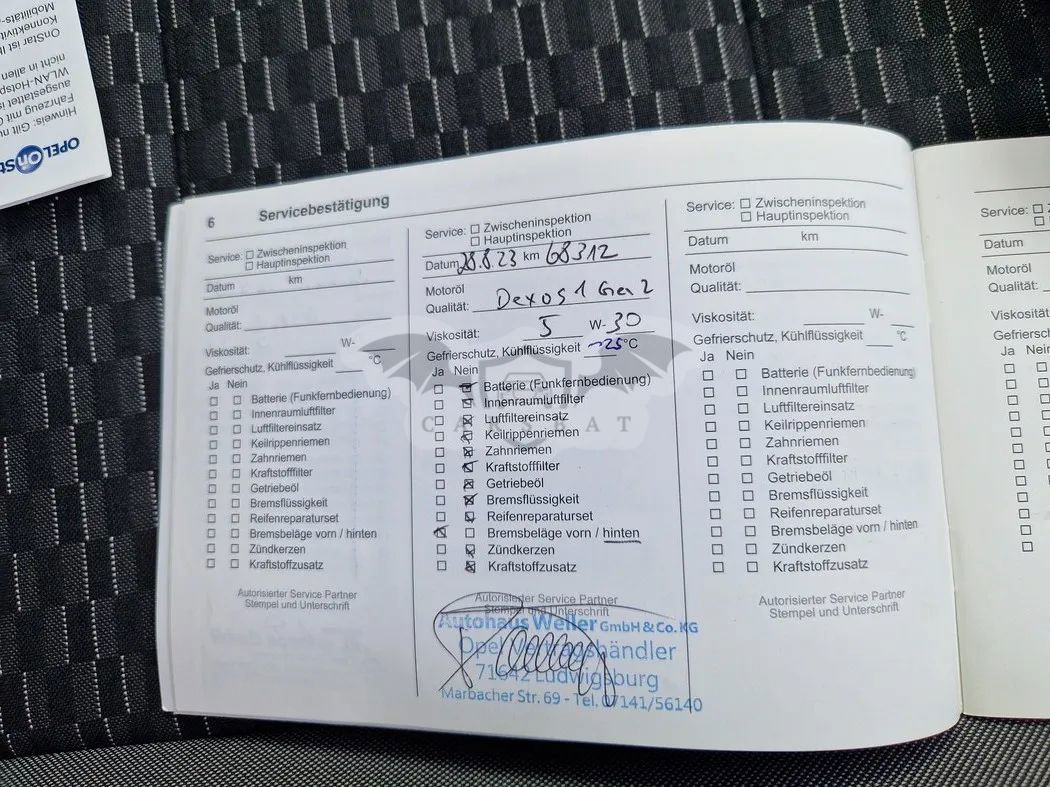 OPEL OnSt
Hinweis: Gilt nu
Fahrzeug mit O
ausgestattet is
WLAN-Hotsp
nicht in allen
OnStar ist Ih
Konnektivit
Mobilitäts-
6 Servicebestätigung
Service: ☐ Zwischeninspektion
☐ Hauptinspektion
Datum km
Motoröl
Qualität:
Viskosität: W-
Gefrierschutz, Kühlflüssigkeit °C
Ja Nein
☐ ☐ Batterie (Funkfernbedienung)
☐ ☐ Innenraumluftfilter
☐ ☐ Luftfiltereinsatz
☐ ☐ Keilrippenriemen
☐ ☐ Zahnriemen
☐ ☐ Kraftstofffilter
☐ ☐ Getriebeöl
☐ ☐ Bremsflüssigkeit
☐ ☐ Reifenreparaturset
☐ ☐ Bremsbeläge vorn / hinten
☐ ☐ Zündkerzen
☐ ☐ Kraftstoffzusatz
Autorisierter Service Partner
Stempel und Unterschrift
Service: ☐ Zwischeninspektion
☐ Hauptinspektion
Datum 28.8.23 km 68312
Motoröl
Qualität: Dexos 1 Gen 2
Viskosität: 5 W-30
Gefrierschutz, Kühlflüssigkeit -25°C
Ja Nein
☐ ☒ Batterie (Funkfernbedienung)
☐ ☒ Innenraumluftfilter
☐ ☒ Luftfiltereinsatz
☐ ☒ Keilrippenriemen
☐ ☒ Zahnriemen
☐ ☒ Kraftstofffilter
☐ ☒ Getriebeöl
☐ ☒ Bremsflüssigkeit
☐ ☒ Reifenreparaturset
☒ ☐ Bremsbeläge vorn / hinten
☐ ☒ Zündkerzen
☐ ☒ Kraftstoffzusatz
Autorisierter Service Partner
Stempel und Unterschrift
Autohaus Weller GmbH & Co. KG
Opel Vertragshändler
71642 Ludwigsburg
Marbacher Str. 69 - Tel. 07141/56140
CARSBAT
Service: ☐ Zwischeninspektion
☐ Hauptinspektion
Datum km
Motoröl
Qualität:
Viskosität: W-
Gefrierschutz, Kühlflüssigkeit °C
Ja Nein
☐ ☐ Batterie (Funkfernbedienung)
☐ ☐ Innenraumluftfilter
☐ ☐ Luftfiltereinsatz
☐ ☐ Keilrippenriemen
☐ ☐ Zahnriemen
☐ ☐ Kraftstofffilter
☐ ☐ Getriebeöl
☐ ☐ Bremsflüssigkeit
☐ ☐ Reifenreparaturset
☐ ☐ Bremsbeläge vorn / hinten
☐ ☐ Zündkerzen
☐ ☐ Kraftstoffzusatz
Autorisierter Service Partner
Stempel und Unterschrift
Service: ☐ Z
☐
Datum
Motoröl
Qualität:
Viskositä
Gefriersc
Ja Nein